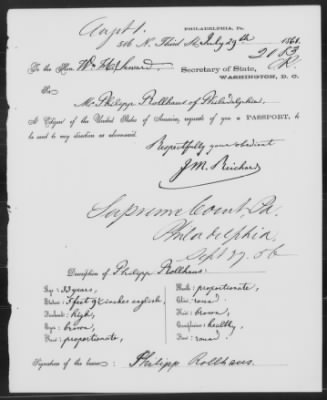 Augt 1.
PHILADELPHIA, Pa.
516 N. Third St. July 29th 1861.
2083
To the Hon. Wm H. Seward
Secretary of State,
WASHINGTON, D. C.
Sir
Mr Philipp Rollhaus of Philadelphia,
A Citizen of the United States of America, requests of you a PASSPORT, to
be sent to my direction as aforesaid.
Respectfully your obedient
J. M. Reichard
Supreme Court, Pa.
Philadelphia,
Sept 27. 56
Description of Philipp Rollhaus:
Age: 33 years,
Stature: 5 feet 9½ inches english,
Forehead: high,
Eyes: brown,
Nose: proportionate,
Mouth: proportionate,
Chin: round.
Hair: brown,
Complexion: healthy,
Face: round.
Signature of the bearer: Philipp Rollhaus.